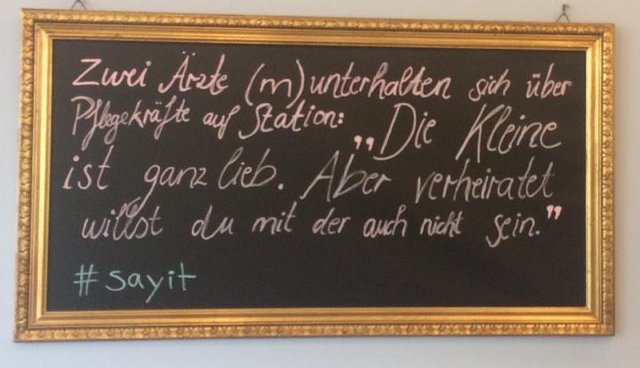 Zwei Ärzte (m) unterhalten sich über
Pflegekräfte auf Station: „Die Kleine
ist ganz lieb. Aber verheiratet
willst du mit der auch nicht sein."
#sayit